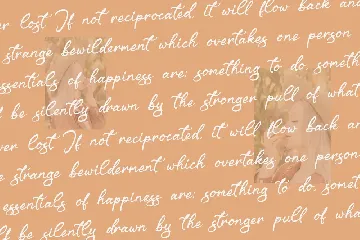 er lost" If not reciprocated, it will flow back and
strange bewilderment which overtakes one person
essentials of happiness are: something to do, someth
be silently drawn by the stronger pull of what
ver lost" If not reciprocated, it will flow back an
e strange bewilderment which overtakes one person
essentials of happiness are: something to do, somet
be silently drawn by the stronger pull of what